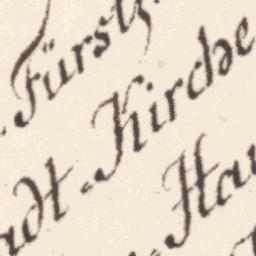 Fürstl.
adt-Kirche
Hau